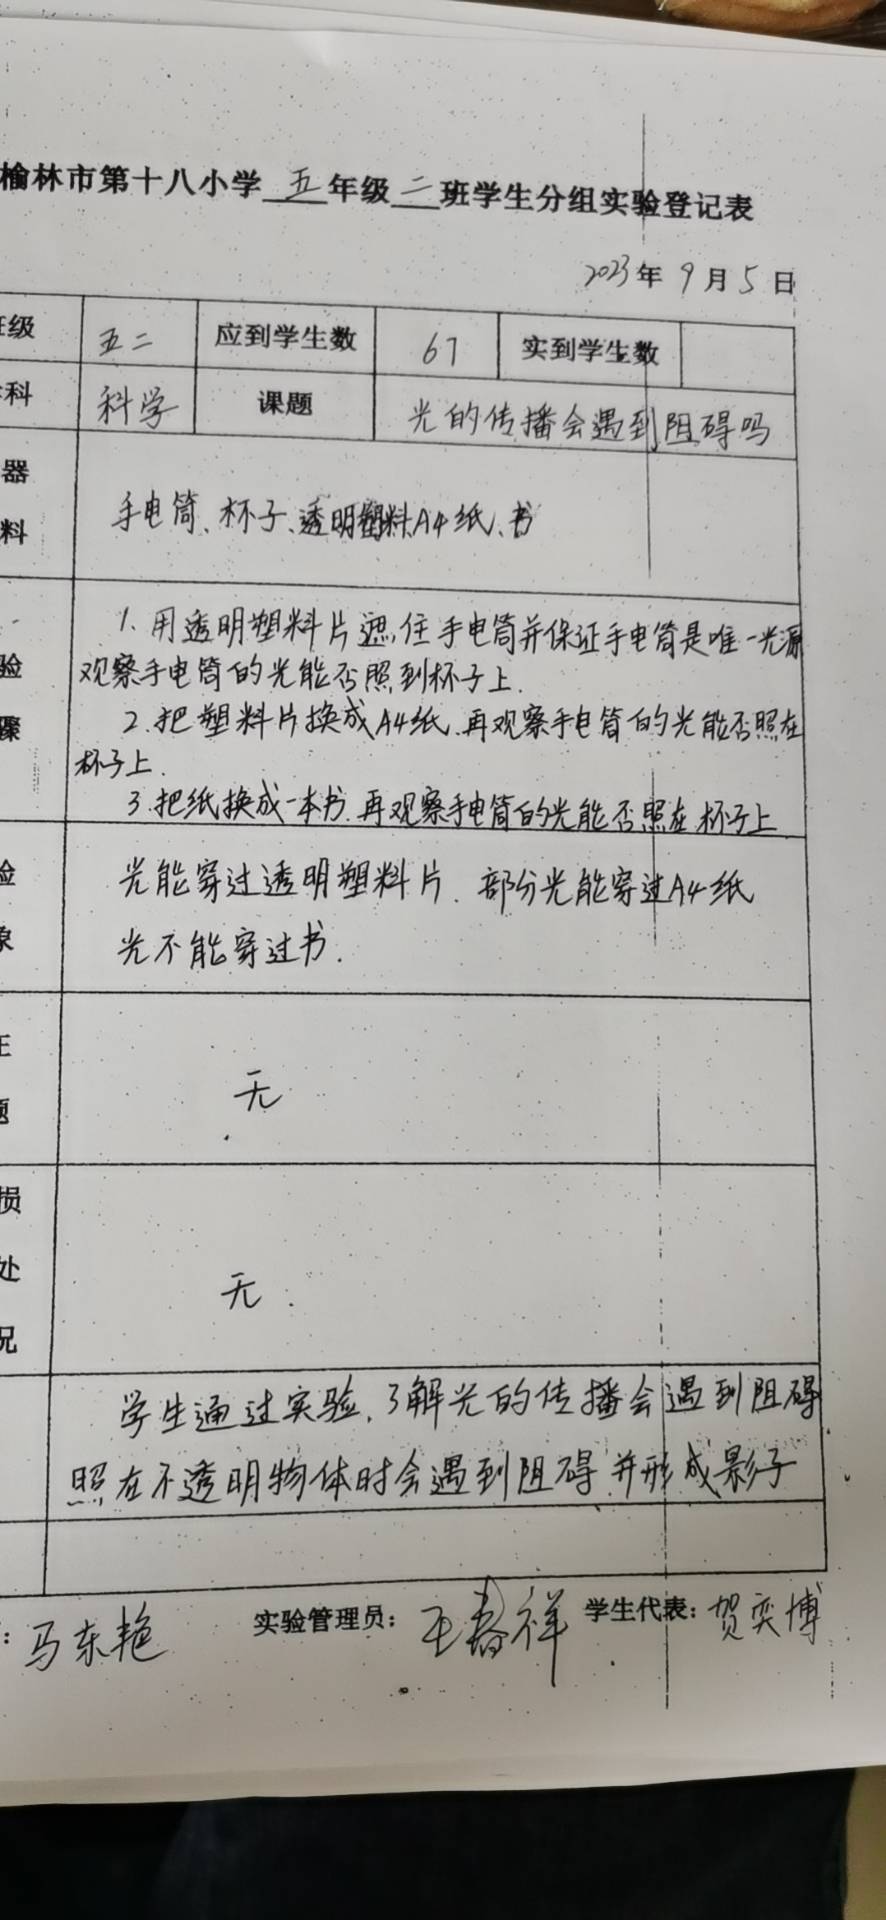 榆林市第十八小学 五 年级 二 班学生分组实验登记表
2023年 9 月 5 日
级 五二 应到学生数 67 实到学生数
科 科学 课题 光的传播会遇到阻碍吗
器
料
手电筒、杯子、透明塑料、A4纸、书
验
骤
1.用透明塑料片遮住手电筒并保证手电筒是唯一光源
观察手电筒的光能否照到杯子上.
2.把塑料片换成A4纸.再观察手电筒的光能否照在
杯子上.
3.把纸换成一本书.再观察手电筒的光能否照在杯子上
光能穿过透明塑料片.部分光能穿过A4纸
光不能穿过书.
无
损
处
况
无.
学生通过实验,了解光的传播会遇到阻碍
照在不透明物体时会遇到阻碍.并形成影子
: 马东艳 实验管理员: 王春祥 学生代表: 贺奕博